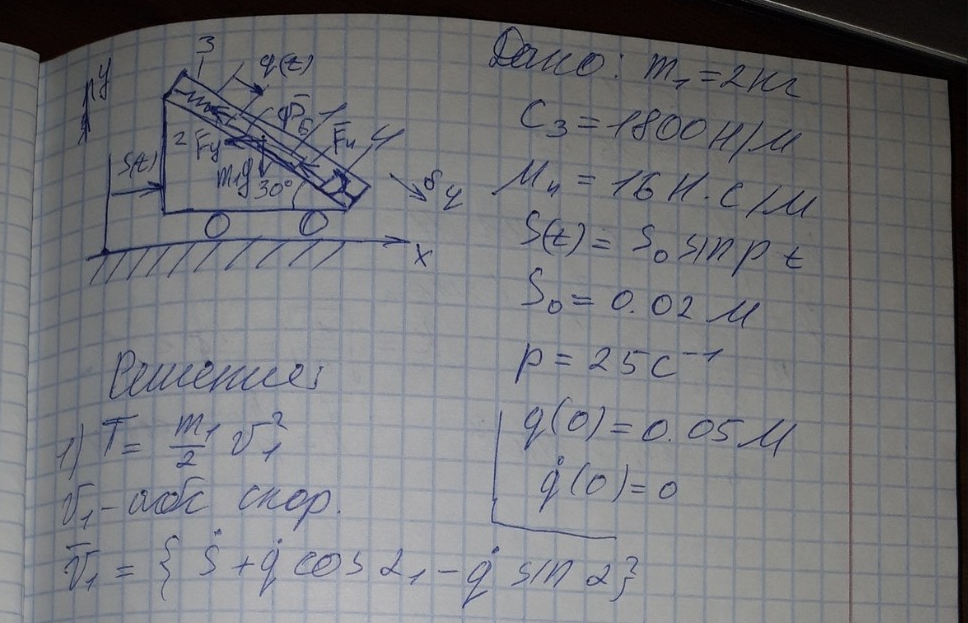 y
3
q(t)
Φ̄б
1
F̄н
4
2
F̄y
S(t)
m₁g
30°
δ
ч
x
Дано: m₁ = 2 кг
C₃ = 1800 Н/м
μ₄ = 16 Н·с/м
S(t) = S₀ sin p t
S₀ = 0.02 м
p = 25 c⁻¹
q(0) = 0.05 м
q̇(0) = 0
Решение:
1) T = m₁/2 v₁²
v₁ - абс скор.
v̄₁ = { ṡ + q̇ cos α, - q̇ sin α}